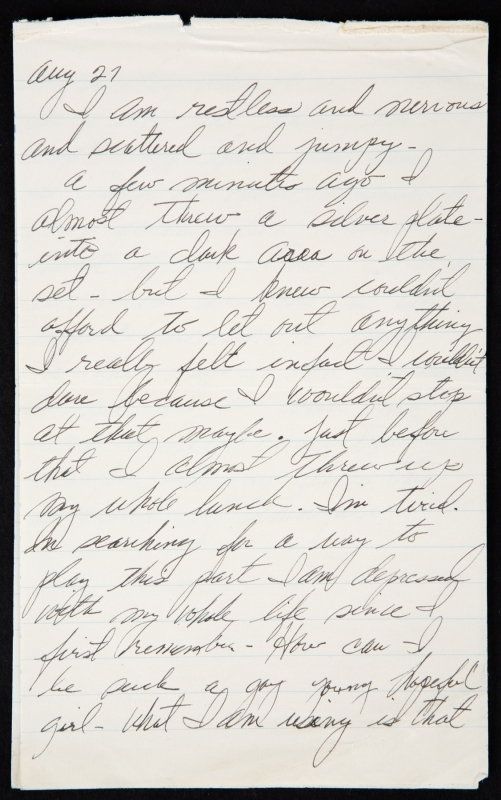 Aug 27
I am restless and nervous
and scattered and jumpy -
a few minutes ago I
almost threw a silver plate -
into a dark area on the
set - but I knew couldn't
afford to let out anything
I really felt infact I wouldn't
dare because I wouldn't stop
at that maybe. Just before
that I almost threw up
my whole lunch. I'm tired.
Im searching for a way to
play this part I am depressed
with my whole life since I
first remember - How can I
be such a gay young hopeful
girl - What I am using is that